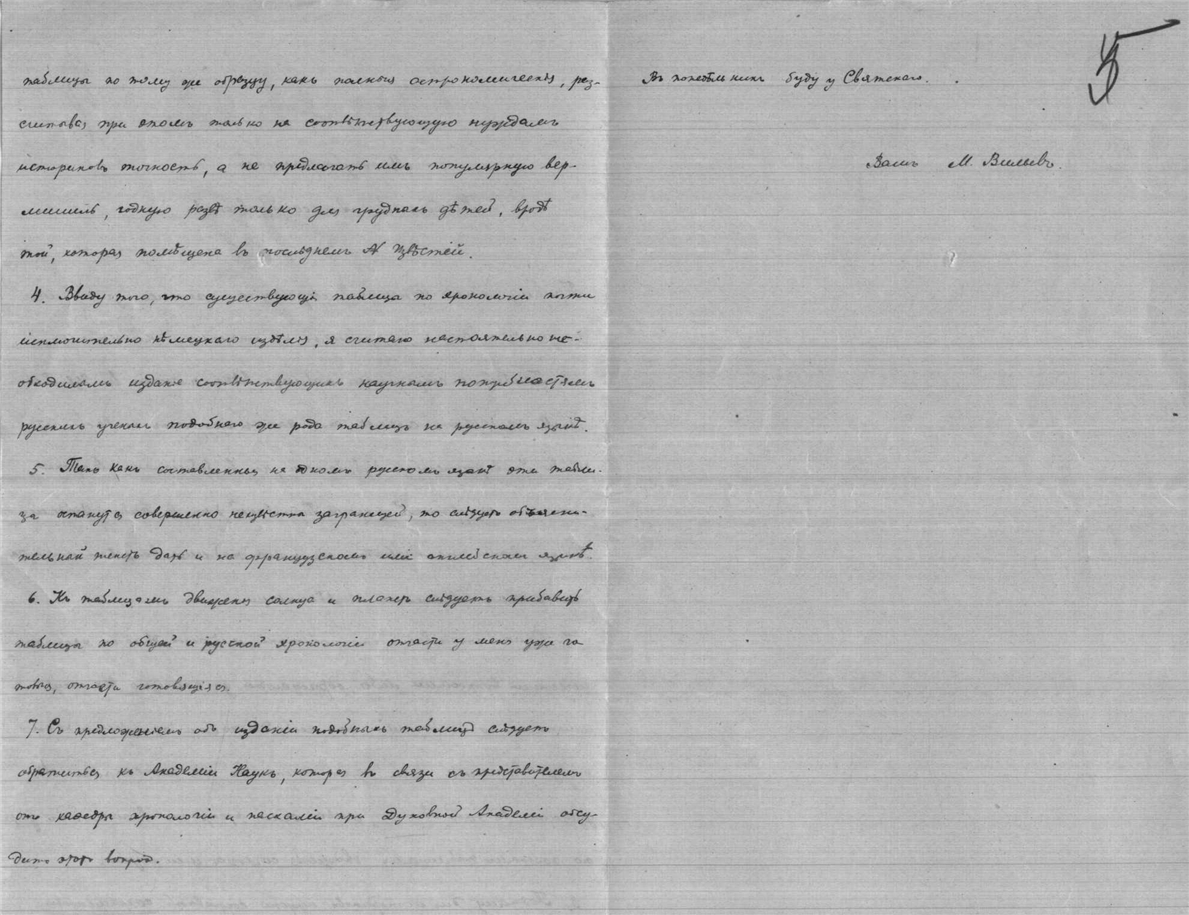 таблицы по тому же образцу, какъ полныя астрономическія, раз-
считывая при этомъ только на соотвѣтствующую нуждамъ
историковъ точность, а не предлагать имъ популярную вер-
мишель, годную развѣ только для грудныхъ дѣтей, вродѣ
той, которая помѣщена въ послѣднемъ № Извѣстій.
4. Ввиду того, что существующія таблицы по хронологіи почти
исключительно нѣмецкаго издѣлія, я считаю настоятельно не-
обходимымъ изданіе соотвѣтствующихъ научнымъ потребностямъ
русскихъ ученыхъ подобнаго же рода таблицъ на русскомъ языкѣ.
5. Такъ какъ составленныя на одномъ русскомъ языкѣ эти табли-
цы останутся совершенно неизвѣстны заграницей, то слѣдуетъ объясни-
тельный текстъ дать и на французскомъ или англійскомъ языкѣ.
6. Къ таблицамъ движенія солнца и планетъ слѣдуетъ прибавить
таблицы по общей и русской хронологіи отчасти у меня уже го
товыя, отчасти готовящіяся.
7. Съ предложеніемъ объ изданіи подобныхъ таблицъ слѣдуетъ
обратиться къ Академіи Наукъ, которая въ связи съ представителемъ
отъ кафедры хронологіи и пасхаліи при Духовной Академіи обсу-
дитъ этотъ вопросъ.
5
Въ понедѣльникъ буду у Святскаго.
Вашъ М. Вильевъ.